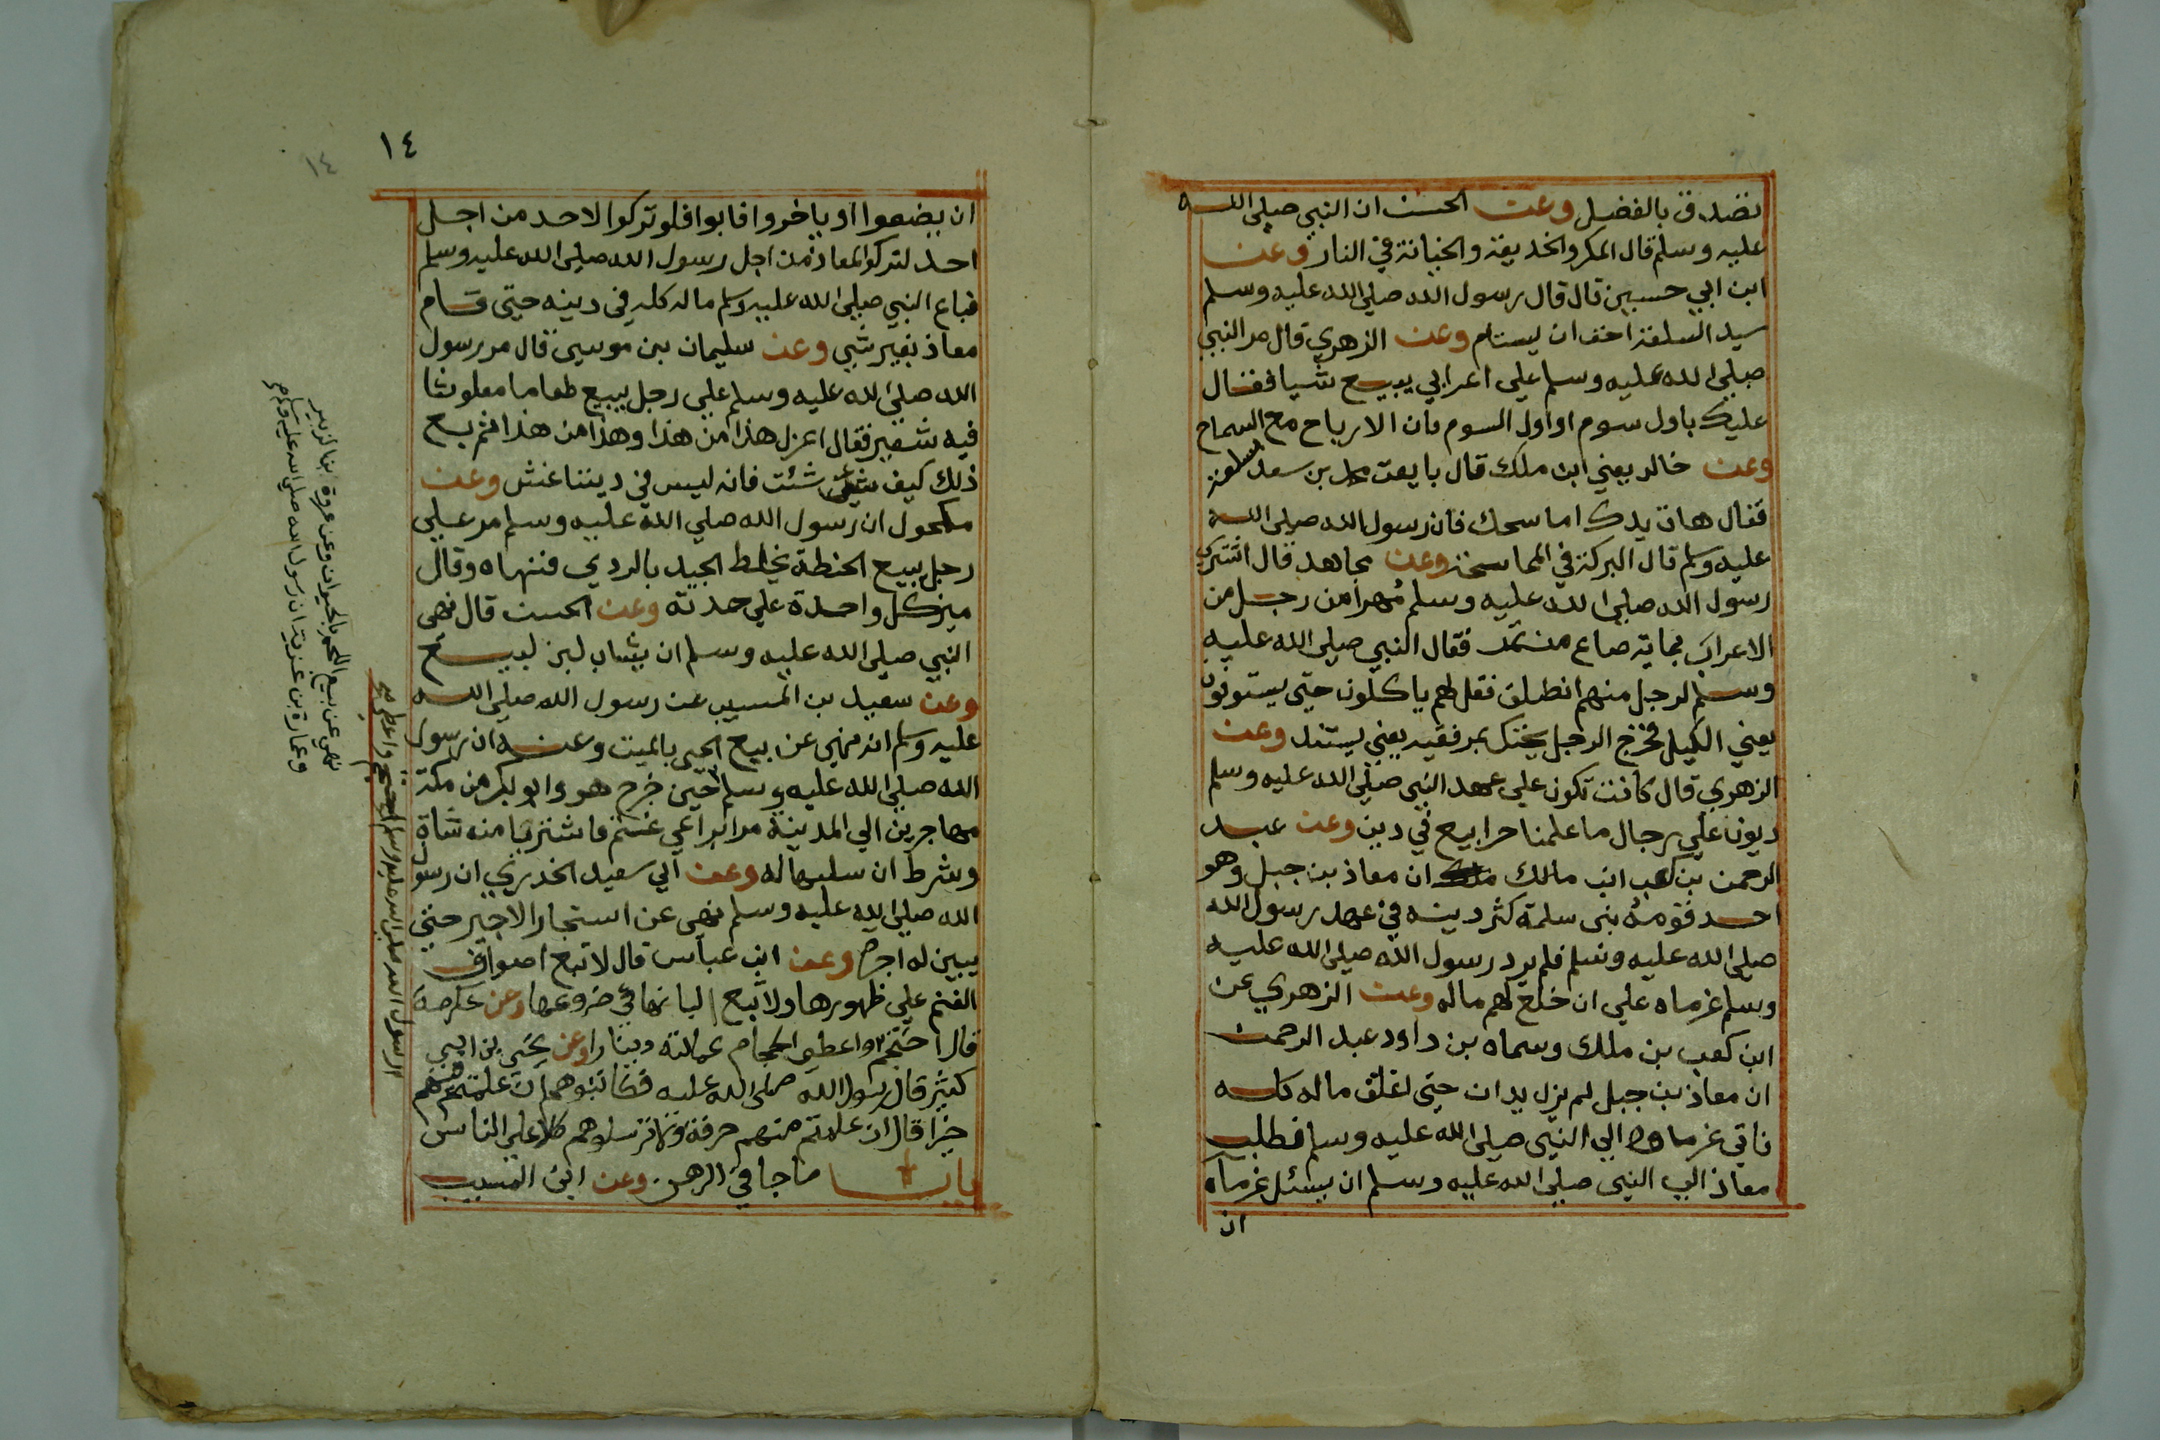 تصدق بالفضل وعن الحسن ان النبي صلى الله
عليه وسلم قال المكر والخديعة والخيانة في النار وعن
ابن ابي حسين قال قال رسول الله صلى الله عليه وسلم
سيد السلعة احق ان يستام وعن الزهري قال مر النبي
صلى الله عليه وسلم على اعرابي يبيع شيا فقال
عليك باول سوم او اول السوم فان الارباح مع السماح
وعن خالد يعني ابن ملك قال بايعت محمد بن سعد سلعة
فقال هات يدك اماسحك فان رسول الله صلى الله
عليه وسلم قال البركة في المماسحة وعن مجاهد قال اشترى
رسول الله صلى الله عليه وسلم مُهرا من رجل من
الاعراب بماية صاع من تمر فقال النبي صلى الله عليه
وسلم لرجل منهم انطلق فقل لهم ياكلون حتى يستوفون
يعني الكيل فخرج الرجل يحتك بمرفقيه يعني يستند وعن
الزهري قال كانت تكون على عهد النبي صلى الله عليه وسلم
ديون على رجال ما علمنا حرا بيع في دين وعن عبد
الرحمن بن كعب ابن مالك ان معاذ بن جبل وهو
احد قومه بنى سلمة كثر دينه في عهد رسول الله
صلى الله عليه وسلم فلم يرد رسول الله صلى الله عليه
وسلم غرماه على ان خلع لهم ماله وعن الزهري عن
ابن كعب بن ملك وسماه بن داود عبد الرحمن
ان معاذ بن جبل لم يزل يدان حتى اغلق ماله كله
فاتى غرماوه الى النبى صلى الله عليه وسلم فطلب
معاذ الى النبى صلى الله عليه وسلم ان يسئل غرماه
ان
١٤
١٤
ان يضعوا او ياخروا فابوا فلو تركوا لاحد من اجل
احد لتركوا لمعاذ من اجل رسول الله صلى الله عليه وسلم
فباع النبي صلى الله عليه وسلم ماله كله في دينه حتى قام
معاذ بغير شي وعن سليمان بن موسى قال مر رسول
الله صلى الله عليه وسلم على رجل يبيع طعاما مغلوثا
فيه شعير فقال اعزل هذا من هذا وهذا من هذا ثم بع
ذلك كيف شئت فانه ليس في ديننا غش وعن
مكحول ان رسول الله صلي الله عليه وسلم مر على
رجل يبيع الحنطة يخلط الجيد بالردي فنهاه وقال
ميز كل واحدة على حدته وعن الحسن قال نهى
النبي صلى الله عليه وسلم ان يشاب لبن لبيع
وعن سعيد بن المسيب عن رسول الله صلى الله
عليه وسلم انه نهى عن بيع الحي بالميت وعنه ان رسول
الله صلى الله عليه وسلم حين خرج هو وابو بكر من مكة
مهاجرين الى المدينة مرا براعي غنم فاشتريا منه شاة
وشرط ان سلبها له وعن ابي سعيد الخدري ان رسول
الله صلى الله عليه وسلم نهى عن استجار الاجير حتى
يبين له اجره وعن ابن عباس قال لا تبع اصواف
الغنم على ظهورها ولا تبع البانها في ضروعها وعن عكرمة
قال احتجم واعطى الحجام عمالته دينارا وعن يحيى بن ابي
كثير قال رسول الله صلى الله عليه فكاتبوهم ان علمتم فيهم
خيرا قال ان علمتم منهم حرفة ولا ترسلوهم كلا على الناس
باب ما جا في الرهن وعن ابن المسيب
الرسول الله صلى الله عليه وسلم احتجم واعطى
نهى عن بيع اللحم بالحيوان وعن عروة ابن الزبير
وعمارة بن غزية ان رسول الله صلى الله عليه وسلم